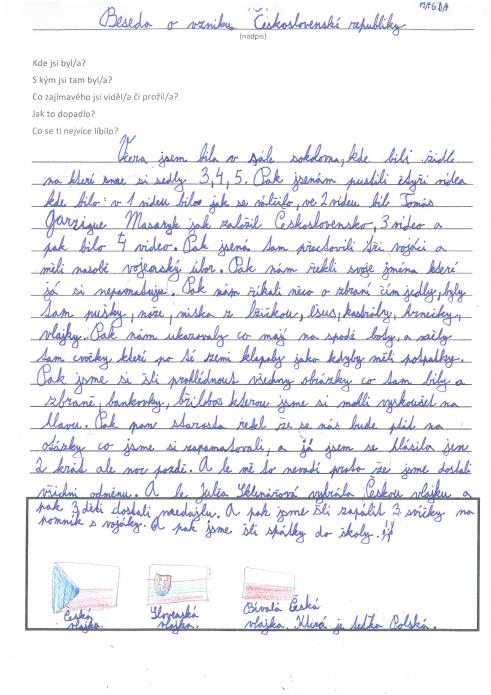 MAGDA
Beseda o vzniku Československé republiky
(nadpis)
Kde jsi byl/a?
S kým jsi tam byl/a?
Co zajímavého jsi viděl/a či prožil/a?
Jak to dopadlo?
Co se ti nejvíce líbilo?
Včera jsem bila v sále sokolovna, kde bili židle
na které sme si sedly 3, 4, 5. Pak jsenám pustili čtyři videa
kde bilo: v 1 videu bilo jak se válčilo, ve 2 videu bil Tomáš
Garzigue Masaryk jak založil Československo, 3 video a
pak bilo 4 video. Pak jsená tam předovili tři vojáci a
měli nasobě vojenský úbor. Pak nám řekli svoje jména které
já si nepamatuju. Pak nám říkali něco o zbraní čím jedly, byly
tam pušky, nože, miska z lžičkou, ešus, kastróly, hrnečky,
vlajky. Pak nám ukazovaly co mají na spodě boty, a měly
tam cvočky, které po té zemi klapaly jako kdyby měli potpatky.
Pak jsme si šli prohlédnout všechny obrázky co tam bily a
zbraně, bankovky, helmba kterou jsme si mohli vyskoušet na
hlavu. Pak pam starosta řekl že se nás bude ptát na
otázky co jsme si zapamatovali, a já jsem se hlásila jen
2 krát ale moc pozdě. A le mě to nevadí proto že jsme dostali
všichni odměnu. A le Julča Sklenářová vybrala Českou vlajku a
pak 3 děti dostali medajlu. A pak jsme šli zapálit 3 svíčky na
pomník s vojáky. A pak jsme šli spátky do školy.!!
Česká
vlajka.
Slovenská
vlajka.
Bívalá Česká
vlajka. Která je teťka Polská.